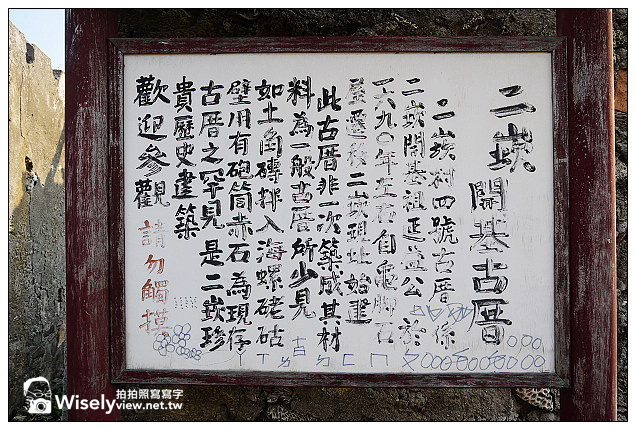 二崁開基古厝
二崁村四號古厝係
二崁開基祖延益公於
一六九〇年左右自龜腳石
二崁現址始建
此古厝非一次築成其材
料為一般古厝所少見
如土角磚排入海螺硓𥑮
壁用有砲筒赤石為現存
古厝之罕見是二崁珍
貴歷史建築
歡迎參觀 請勿觸摸
Wiselyview.net.tw
拍拍照寫寫字